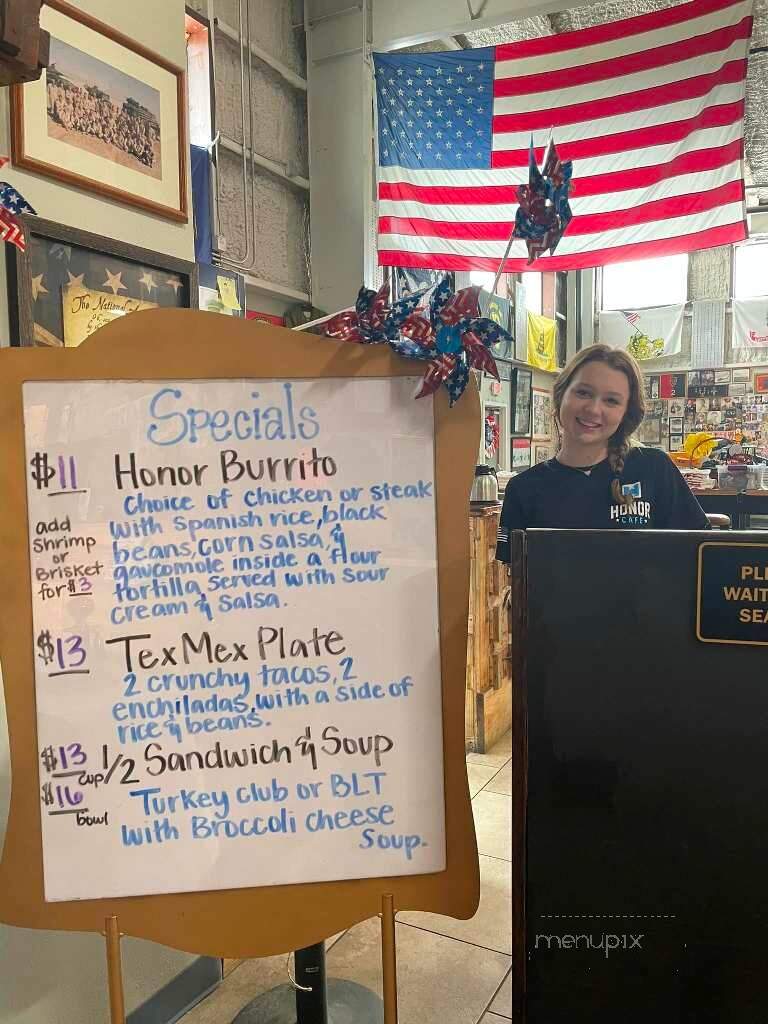 The National
Specials
$11 Honor Burrito
Choice of chicken or steak
with Spanish rice, black
beans, corn salsa, &
gaucomole inside a flour
tortilla, served with sour
cream & salsa.
add
shrimp
or
Brisket
for $3
$13 TexMex Plate
2 crunchy tacos, 2
enchiladas, with a side of
rice & beans.
$13 cup 1/2 Sandwich & Soup
$16 bowl
Turkey club or BLT
with Broccoli cheese
Soup.
HONOR
CAFE
PLE
WAIT
SEA
menupix